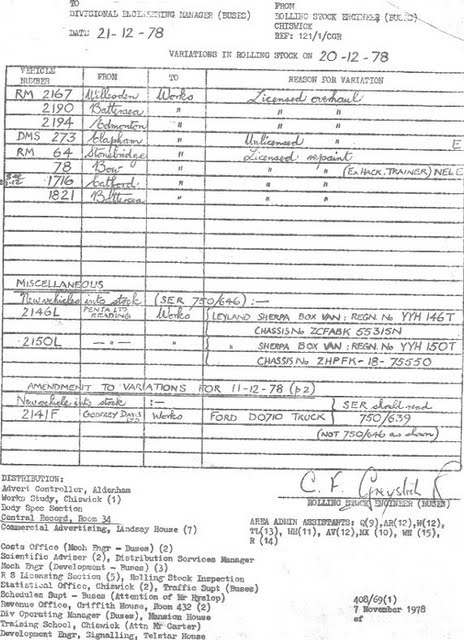 TO
DIVISIONAL ENGINEERING MANAGER (BUSES)
DATE 21-12-78
FROM
ROLLING STOCK ENGINEER (BUSES)
CHISWICK
REF: 121/1/CGR
VARIATIONS IN ROLLING STOCK ON 20-12-78
VEHICLE NUMBER FROM TO REASON FOR VARIATION
RM 2167 Willesden Works Licensed overhaul
2190 Battersea " " "
2194 Edmonton " " "
DMS 273 Clapham " Unlicensed " E
RM 64 Stonebridge " Licensed repaint
78 Bow " " " (Ex HACK. TRAINER) NEL E
1716 Catford " " "
1821 Battersea " " "
MISCELLANEOUS
New vehicles into stock (SER 750/646) :—
2146L PENTA LTD READING Works LEYLAND SHERPA BOX VAN : REGN. No YYH 146T
CHASSIS No ZCFABK 55315N
2150L — " — " " SHERPA BOX VAN : REGN. No YYH 150T
CHASSIS No ZHPFK-18-75550
AMENDMENT TO VARIATIONS FOR 11-12-78 (p2)
New vehicle into stock :—
2141F GODFREY DAVIS LTD Works FORD D0710 TRUCK SER should read 750/639
(NOT 750/646 as shown)
ROLLING STOCK ENGINEER (BUSES)
DISTRIBUTION:
Advert Controller, Aldenham
Works Study, Chiswick (1)
Body Spec Section
Central Record, Room 34
Commercial Advertising, Lindsay House (7)
AREA ADMIN ASSISTANTS: Q(9), AR(12), W(12),
TL(13), WH(11), AV(12), NX (10), WN (15),
R (14)
Costs Office (Mech Engr - Buses) (2)
Scientific Adviser (2), Distribution Services Manager
Mech Engr (Development - Buses) (3)
R S Licensing Section (5), Rolling Stock Inspection
Statistical Office, Chiswick (2), Traffic Supt (Buses)
Schedules Supt - Buses (Attention of Mr Hyslop)
Revenue Office, Griffith House, Room 432 (2)
Div Operating Manager (Buses), Mansion House
Training School, Chiswick (Attn Mr Carter)
Development Engr, Signalling, Telstar House
408/69(1)
7 November 1978
of